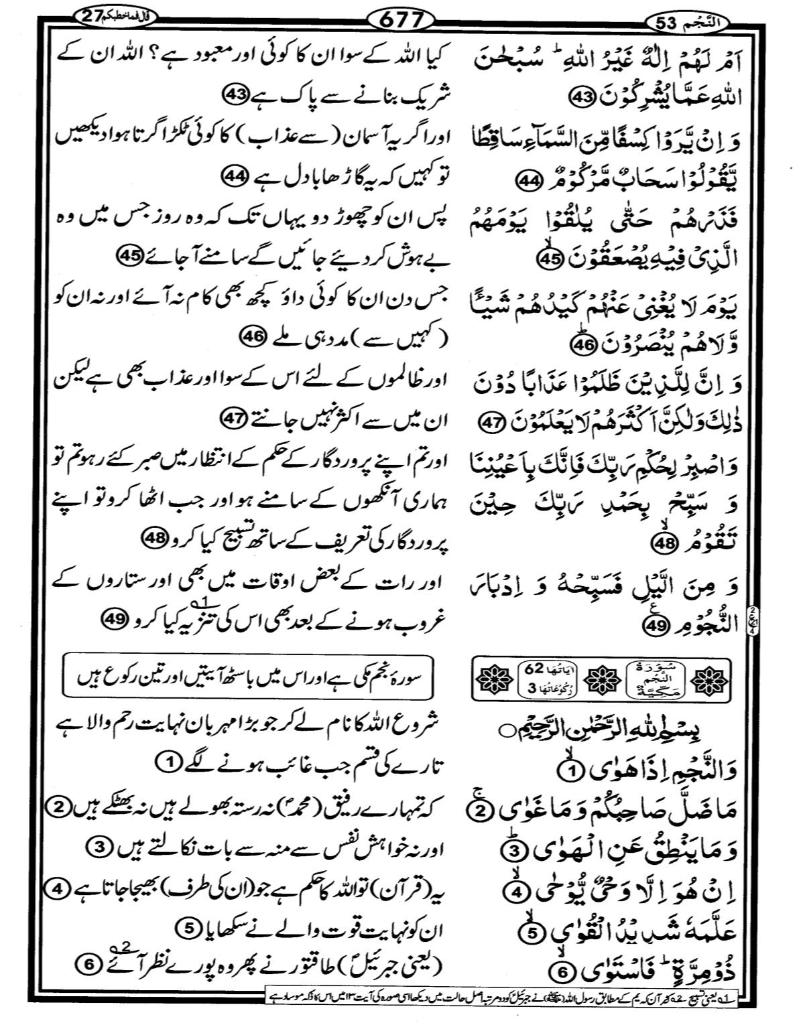 النَّجْم 53
677
قال فما خطبکم 27
اَمْ لَهُمْ اِلٰهٌ غَيْرُ اللّٰهِ ؕ سُبْحٰنَ
اللّٰهِ عَمَّا يُشْرِكُوْنَ 43
وَ اِنْ يَّرَوْا كِسْفًا مِّنَ السَّمَآءِ سَاقِطًا
يَّقُوْلُوْا سَحَابٌ مَّرْكُوْمٌ 44
فَذَرْهُمْ حَتّٰى يُلٰقُوْا يَوْمَهُمُ
الَّذِىْ فِيْهِ يُصْعَقُوْنَ ۙ 45
يَوْمَ لَا يُغْنِىْ عَنْهُمْ كَيْدُهُمْ شَيْـًٔا
وَّلَا هُمْ يُنْصَرُوْنَ ؕ 46
وَ اِنَّ لِلَّذِيْنَ ظَلَمُوْا عَذَابًا دُوْنَ
ذٰلِكَ وَلٰكِنَّ اَكْثَرَهُمْ لَا يَعْلَمُوْنَ 47
وَاصْبِرْ لِحُكْمِ رَبِّكَ فَاِنَّكَ بِاَعْيُنِنَا
وَ سَبِّحْ بِحَمْدِ رَبِّكَ حِيْنَ
تَقُوْمُ ۙ 48
وَ مِنَ الَّيْلِ فَسَبِّحْهُ وَ اِدْبَارَ
النُّجُوْمِ ع 49
سُوْرَةُ النَّجْمِ مَكِّيَّة
اٰيَاتُهَا 62
رُكُوْعَاتُهَا 3
بِسْمِ اللّٰهِ الرَّحْمٰنِ الرَّحِيْمِ ○
وَالنَّجْمِ اِذَا هَوٰى ۙ 1
مَا ضَلَّ صَاحِبُكُمْ وَمَا غَوٰى ۚ 2
وَمَا يَنْطِقُ عَنِ الْهَوٰى ؕ 3
اِنْ هُوَ اِلَّا وَحْىٌ يُّوْحٰى ۙ 4
عَلَّمَهٗ شَدِيْدُ الْقُوٰى ۙ 5
ذُوْ مِرَّةٍ ؕ فَاسْتَوٰى ۙ 6
کیا اللہ کے سوا ان کا کوئی اور معبود ہے؟ اللہ ان کے
شریک بنانے سے پاک ہے 43
اور اگر یہ آسمان (سے عذاب) کا کوئی ٹکڑا گرتا ہوا دیکھیں
تو کہیں کہ یہ گاڑھا بادل ہے 44
پس ان کو چھوڑ دو یہاں تک کہ وہ روز جس میں وہ
بے ہوش کر دیئے جائیں گے سامنے آ جائے 45
جس دن ان کا کوئی داؤ کچھ بھی کام نہ آئے اور نہ ان کو
(کہیں سے) مدد ہی ملے 46
اور ظالموں کے لئے اس کے سوا اور عذاب بھی ہے لیکن
ان میں سے اکثر نہیں جانتے 47
اور تم اپنے پروردگار کے حکم کے انتظار میں صبر کئے رہو تم تو
ہماری آنکھوں کے سامنے ہو اور جب اٹھا کرو تو اپنے
پروردگار کی تعریف کے ساتھ تسبیح کیا کرو 48
اور رات کے بعض اوقات میں بھی اور ستاروں کے
غروب ہونے کے بعد بھی اس کی تنزیہ 1 کیا کرو 49
سورۂ نجم مکی ہے اور اس میں باسٹھ آیتیں اور تین رکوع ہیں
شروع اللہ کا نام لے کر جو بڑا مہربان نہایت رحم والا ہے
تارے کی قسم جب غائب ہونے لگے 1
کہ تمہارے رفیق (محمدؐ) نہ رستہ بھولے ہیں نہ بھٹکے ہیں 2
اور نہ خواہش نفس سے منہ سے بات نکالتے ہیں 3
یہ (قرآن) تو اللہ کا حکم ہے جو (ان کی طرف) بھیجا جاتا ہے 4
ان کو نہایت قوت والے نے سکھایا 5
(یعنی جبرئیلؑ) طاقتور نے پھر وہ پورے نظر آئے 2 6
1 یعنی تسبیح 2 قرآن کریم کے مطابق رسول اللہ (ﷺ) نے جبرئیل کو دو مرتبہ اصل حالت میں دیکھا اسی سورہ کی آیت ۱۳ میں اس کا ذکر موجود ہے